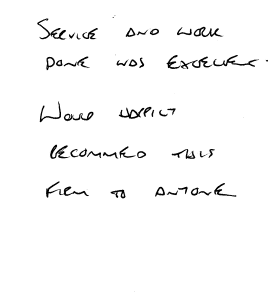 SERVICE AND WORK
DONE WAS EXCELLENT.
WOULD HAPPILY
RECOMMEND THIS
FIRM TO ANYONE